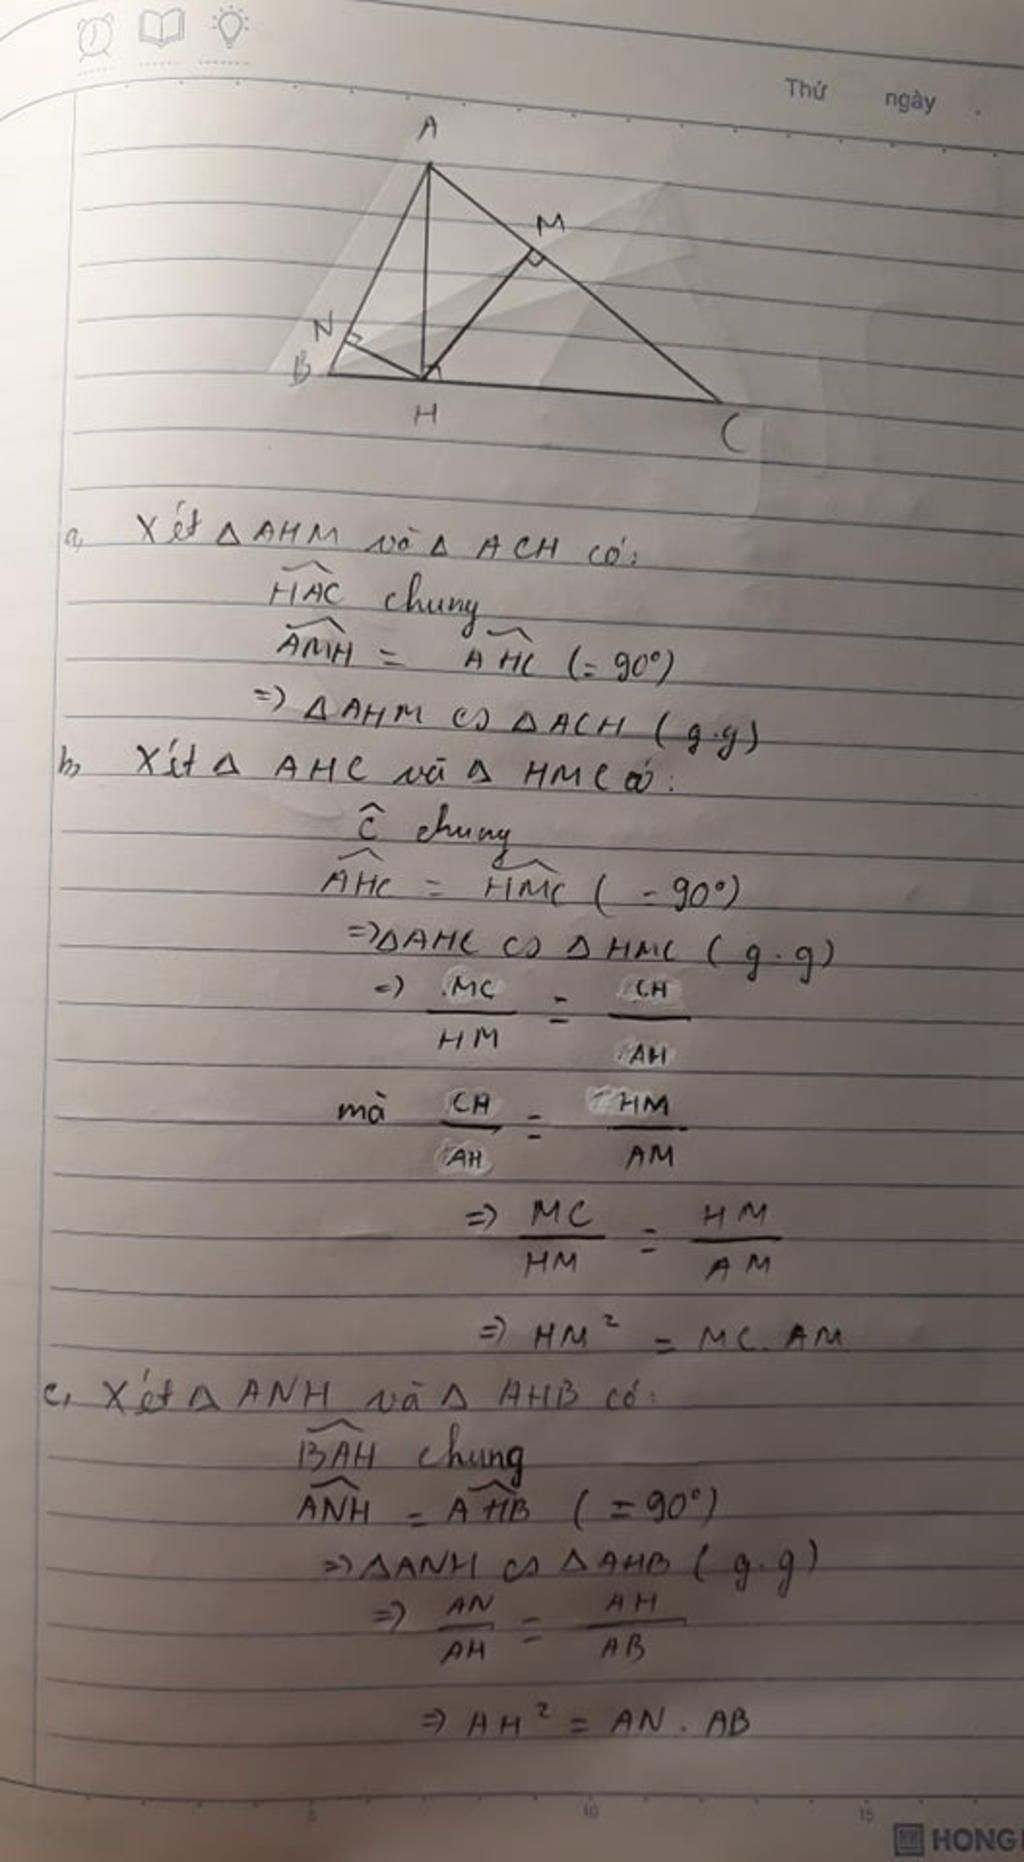 Thứ ngày
A
M
N
B
H
C
a, Xét △ AHM và △ ACH có:
\widehat{HAC} chung
\widehat{AMH} = \widehat{AHC} (= 90°)
=> △ AHM ∽ △ ACH ( g.g)
b, Xét △ AHC và △ HMC có:
\widehat{C} chung
\widehat{AHC} = \widehat{HMC} ( = 90°)
=> △ AHC ∽ △ HMC ( g.g)
=> MC/HM = CH/AH
mà CH/AH = HM/AM
=> MC/HM = HM/AM
=> HM² = MC. AM
c, Xét △ ANH và △ AHB có:
\widehat{BAH} chung
\widehat{ANH} = \widehat{AHB} ( = 90°)
=> △ ANH ∽ △ AHB ( g.g)
=> AN/AH = AH/AB
=> AH² = AN . AB
5 10 15
HONG